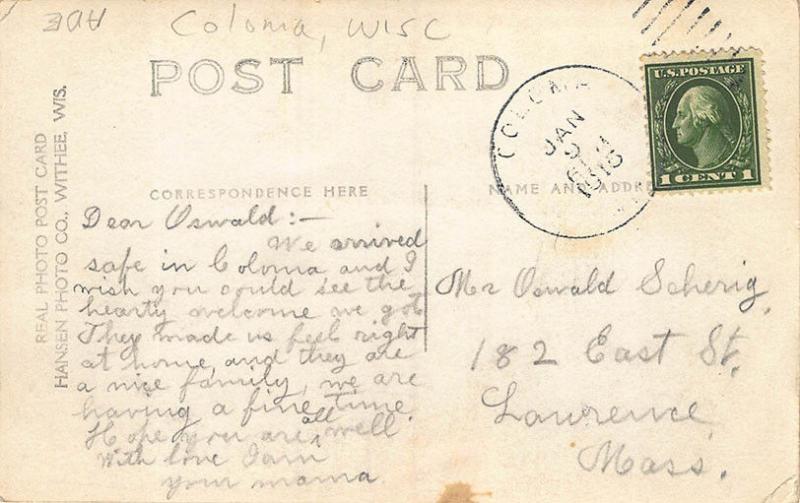 Coloma, WISC
POST CARD
COLOMA
JAN
1915
U.S. POSTAGE
1 CENT 1
REAL PHOTO POST CARD
HANSEN PHOTO CO., WITHEE, WIS.
CORRESPONDENCE HERE
NAME AND ADDRE
Dear Oswald:—
We arrived
safe in Coloma and I
wish you could see the
hearty welcome we got
They made us feel right
at home, and they are
a nice family, we are
having a fine time.
Hope you are all well
With love I am
your mama
Mr Oswald Scherig,
182 East St.
Lawrence,
Mass.